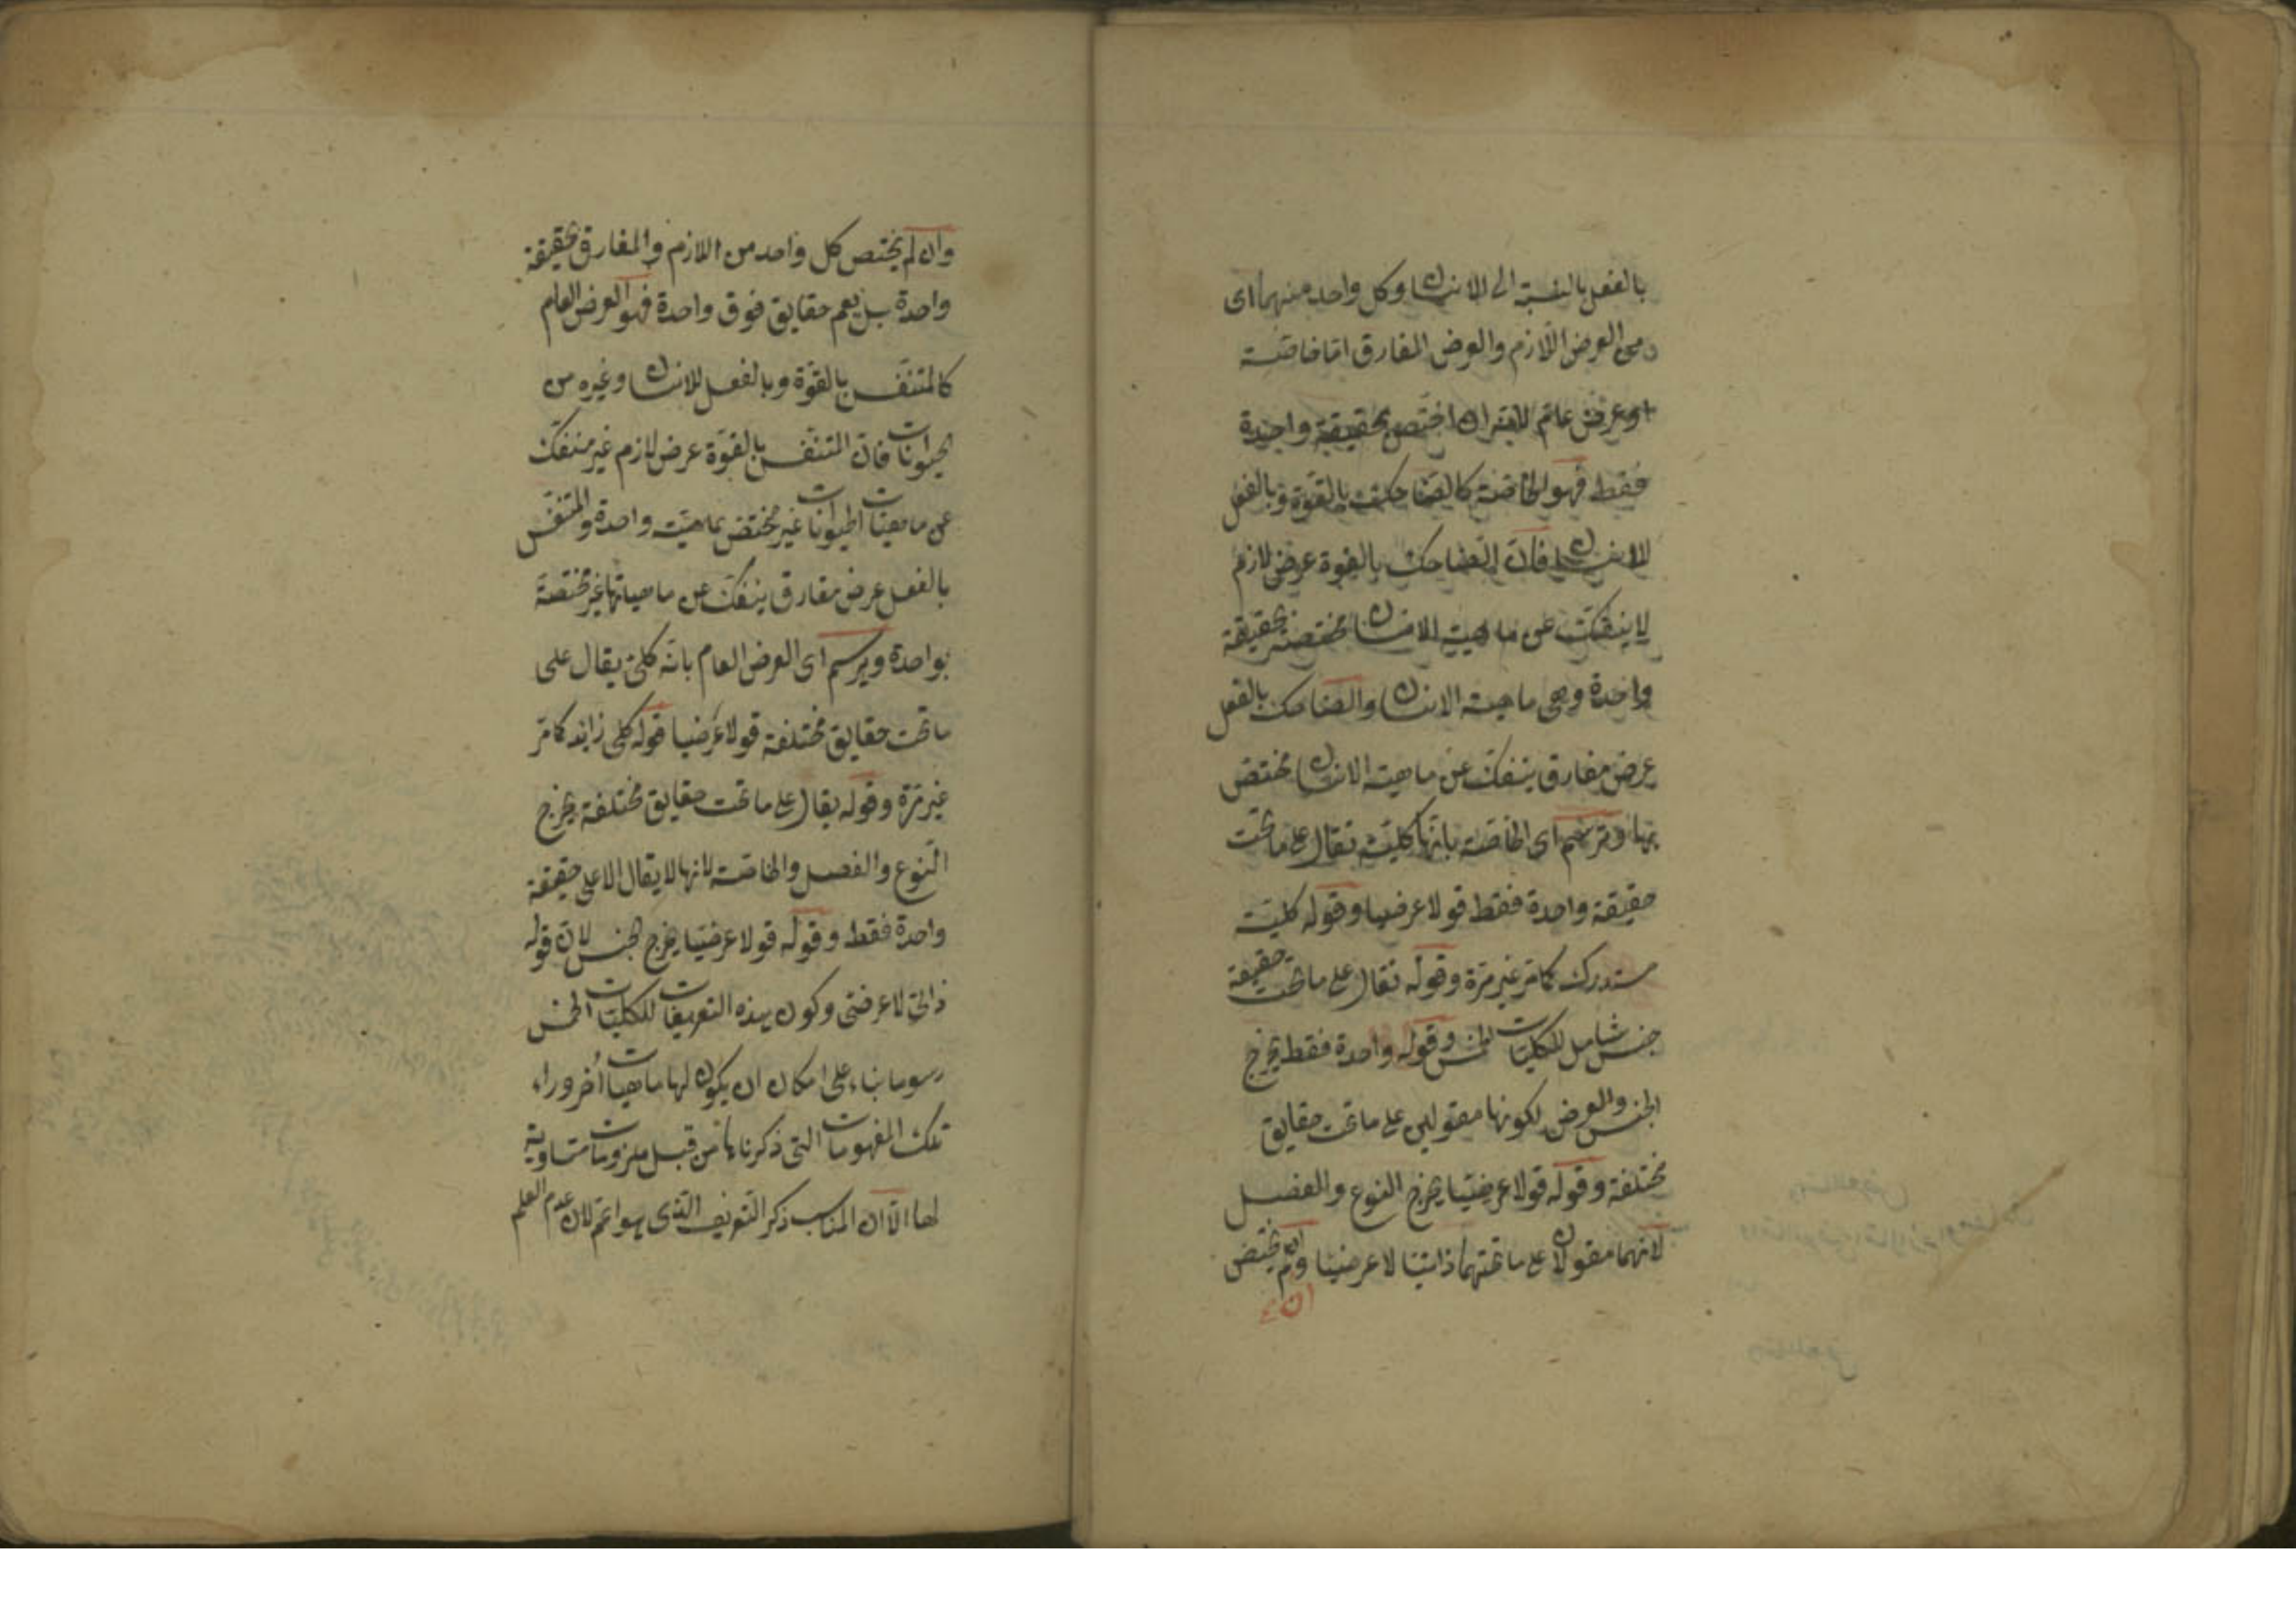 بالفعل بالنسبة الى الانسان وكل واحد منهما اى
من العرض اللازم والعرض المفارق اما خاصة
او عرض عام لانه ان اختص بحقيقة واحدة
فقط فهو الخاصة كالضاحك بالقوة وبالفعل
للانسان فان الضاحك بالقوة عرض لازم
لا ينفك عن ماهية الانسان مختصة بحقيقة
واحدة وهى ماهية الانسان والضاحك بالفعل
عرض مفارق ينفك عن ماهية الانسان مختص
بها وترسم اى الخاصة بانها كلية تقال على ما تحت
حقيقة واحدة فقط قولا عرضيا وقوله كلية
مستدرك كما مر غير مرة وقوله تقال على ما تحت حقيقة
جنس شامل للكليات الخمس وقوله واحدة فقط يخرج
الجنس والعرض لكونها مقولين على ما تحت حقايق
مختلفة وقوله قولا عرضيا يخرج النوع والفصل
لانهما مقولان على ما تحتهما ذاتيا لا عرضيا وان لم يختص
وان لم يختص كل واحد من اللازم والمفارق بحقيقة
واحدة بل يعم حقايق فوق واحدة فهو العرض العام
كالمتنفس بالقوة وبالفعل للانسان وغيره من
الحيوانات فان التنفس بالقوة عرض لازم غير منفك
عن ماهيات الحيوانات غير مختص بماهية واحدة والمتنفس
بالفعل عرض مفارق ينفك عن ماهياتها غير مختصة
بواحدة ويرسم اى العرض العام بانه كلى يقال على
ما تحت حقايق مختلفة قولا عرضيا قوله كلى زايد كما مر
غير مرة وقوله يقال على ما تحت حقايق مختلفة يخرج
النوع والفصل والخاصة لانها لا يقال الا على حقيقة
واحدة فقط وقوله قولا عرضيا يخرج الجنس لان قوله
ذاتى لا عرضى وكون هذه التعريفات للكليات الخمس
رسوما بناء على امكان ان يكون لها ماهيات اخر وراء
تلك المفهومات التى ذكرناها من قبل ملزومات متساوية
لها الا ان المناسب ذكر التعريف الذى هو اعم لان عدم العلم